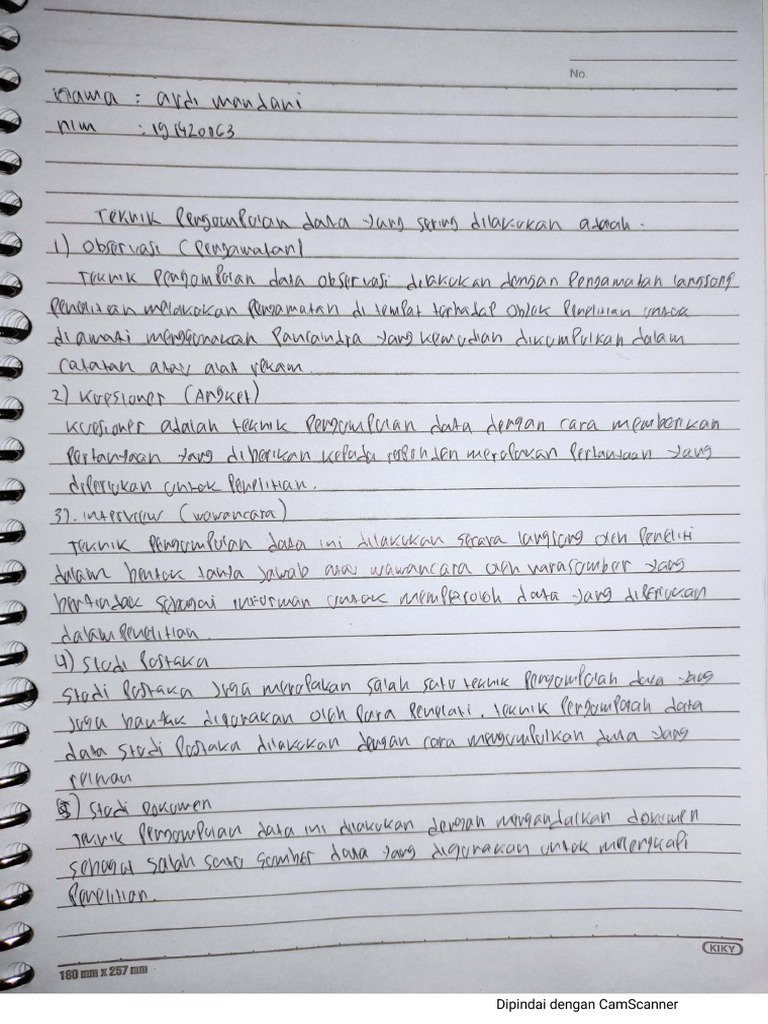 No.
Nama : ardi mandani
nim : 191420063
Teknik Pengumpulan data yang sering dilakukan adalah.
1) Observasi (Pengamatan)
Teknik Pengumpulan data observasi dilakukan dengan Pengamatan langsung
Penelitian melakukan Pengamatan di tempat terhadap Objek Penelitian untuk
diamati menggunakan Pancaindra yang kemudian dikumpulkan dalam
catatan atau alat rekam.
2) Kuesioner (Angket)
Kuesioner adalah teknik Pengumpulan data dengan cara memberikan
Pertanyaan yang diberikan kepada responden merupakan Pertanyaan yang
diperlukan untuk Penelitian.
3). interview (wawancara)
Teknik Pengumpulan data ini dilakukan secara langsung oleh Peneliti
dalam bentuk tanya jawab atau wawancara oleh narasumber yang
bertindak sebagai informan untuk memperoleh data yang diperlukan
dalam Penelitian.
4) Studi Pustaka
Studi Pustaka juga merupakan salah satu teknik Pengumpulan data yang
juga banyak digunakan oleh Para Peneliti. teknik Pengumpulan data
data Studi Pustaka dilakukan dengan cara mengumpulkan data yang
relevan
5) Studi Dokumen
Teknik Pengumpulan data ini dilakukan dengan mengandalkan dokumen
sebagai salah satu sumber data yang digunakan untuk melengkapi
Penelitian.
KIKY
180 mm x 257 mm
Dipindai dengan CamScanner